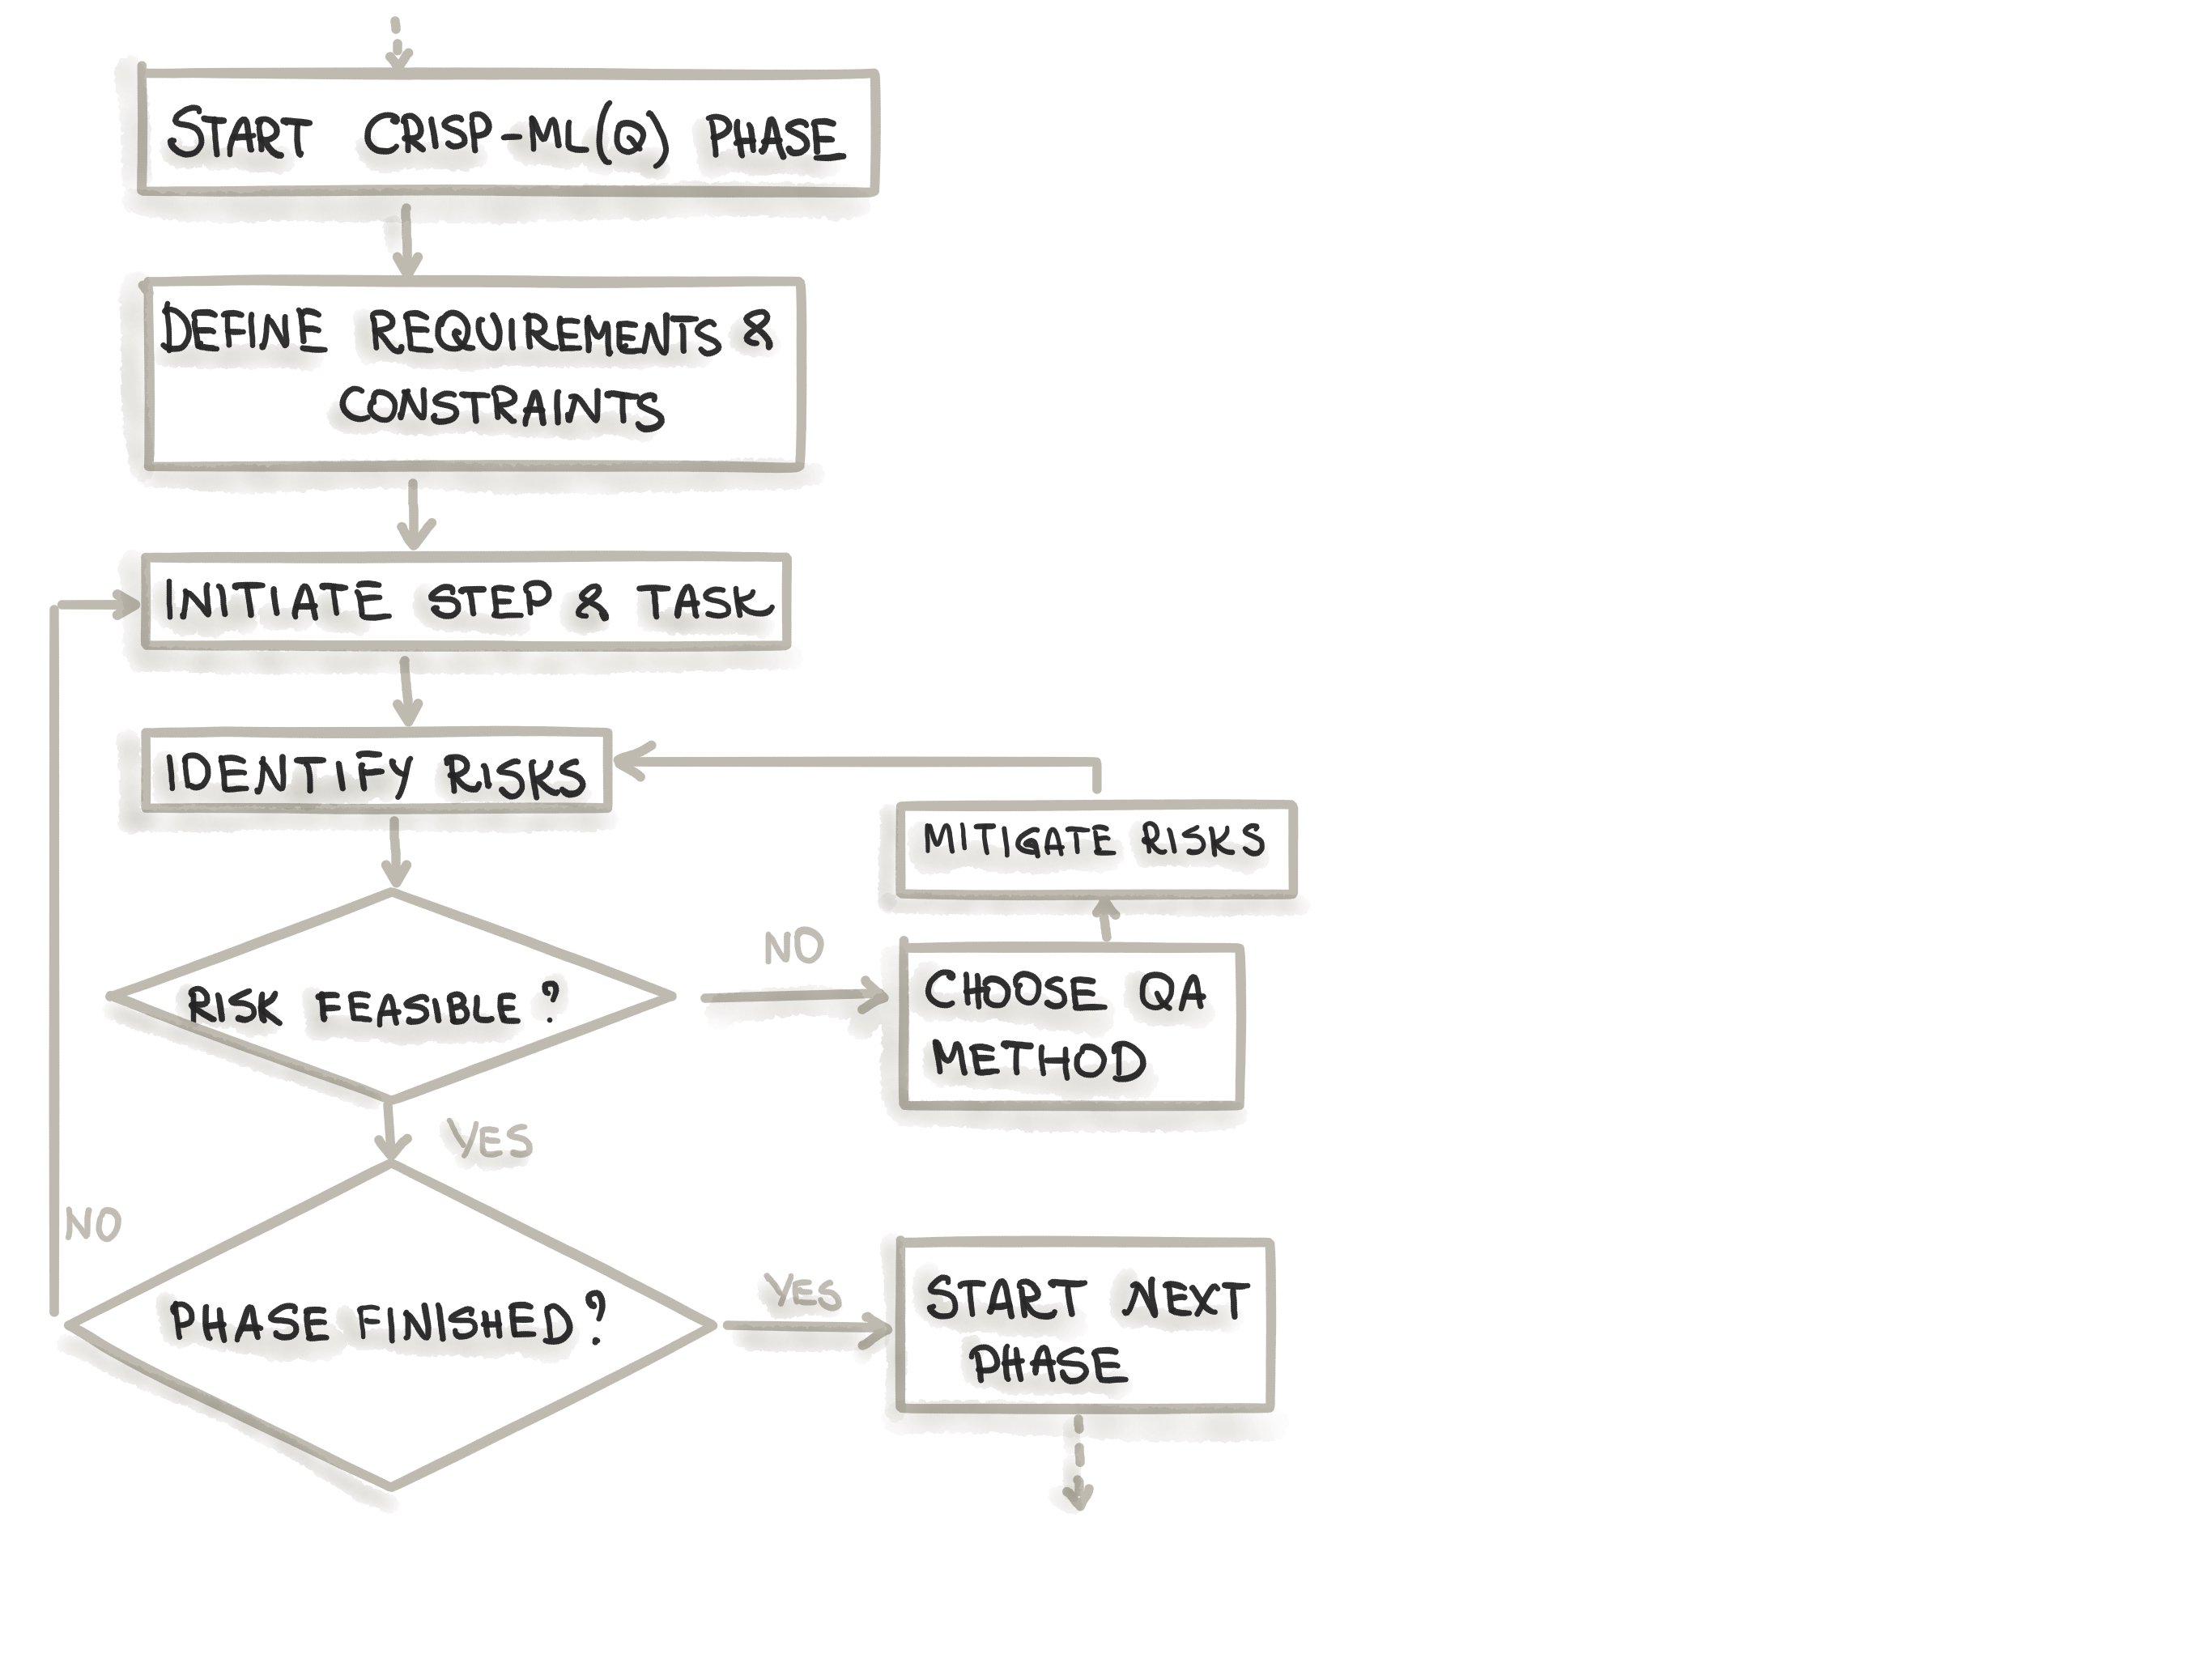 START CRISP-ML(Q) PHASE
DEFINE REQUIREMENTS &
CONSTRAINTS
INITIATE STEP & TASK
IDENTIFY RISKS
MITIGATE RISKS
RISK FEASIBLE?
NO
CHOOSE QA
METHOD
YES
NO
PHASE FINISHED?
YES
START NEXT
PHASE